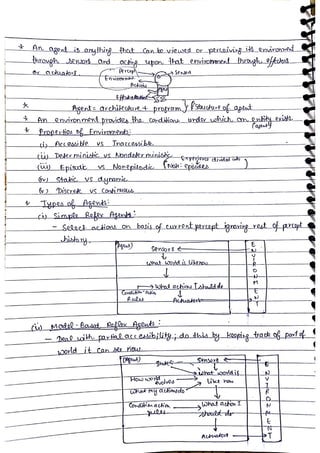 * An agent is anything that can be viewed or perceiving its environment
through sensors and acting upon that environment through effectors
or actuators.
Percept
Sensors
Environment
Actions
Agent = architecture + program } Structure of agent
* An environment provides the conditions under which an entity exists.
(agent)
* Properties of Environment:
(i) Accessible vs Inaccessible.
(ii) Deterministic vs Nondeterministic.
(iii) Episodic vs Nonepisodic
(iv) Static vs dynamic
(v) Discrete vs Continuous
* Types of Agents:
(i) Simple Reflex Agents:
- Select actions on basis of current percept ignoring rest of percept
history.
(Agent)
Sensors
What world is like now
What action I should do
Condition-action
Rules
Actuators
ENVIRONMENT
(ii) Model-Based Reflex Agents:
- Deal with partial accessibility; do this by keeping track of part of
world it can see now.
(Agent)
State
Sensors
What world is
like now
How world
evolves
What my actions do
Condition action
rules
What action I
should do
Actuators
ENVIRONMENT